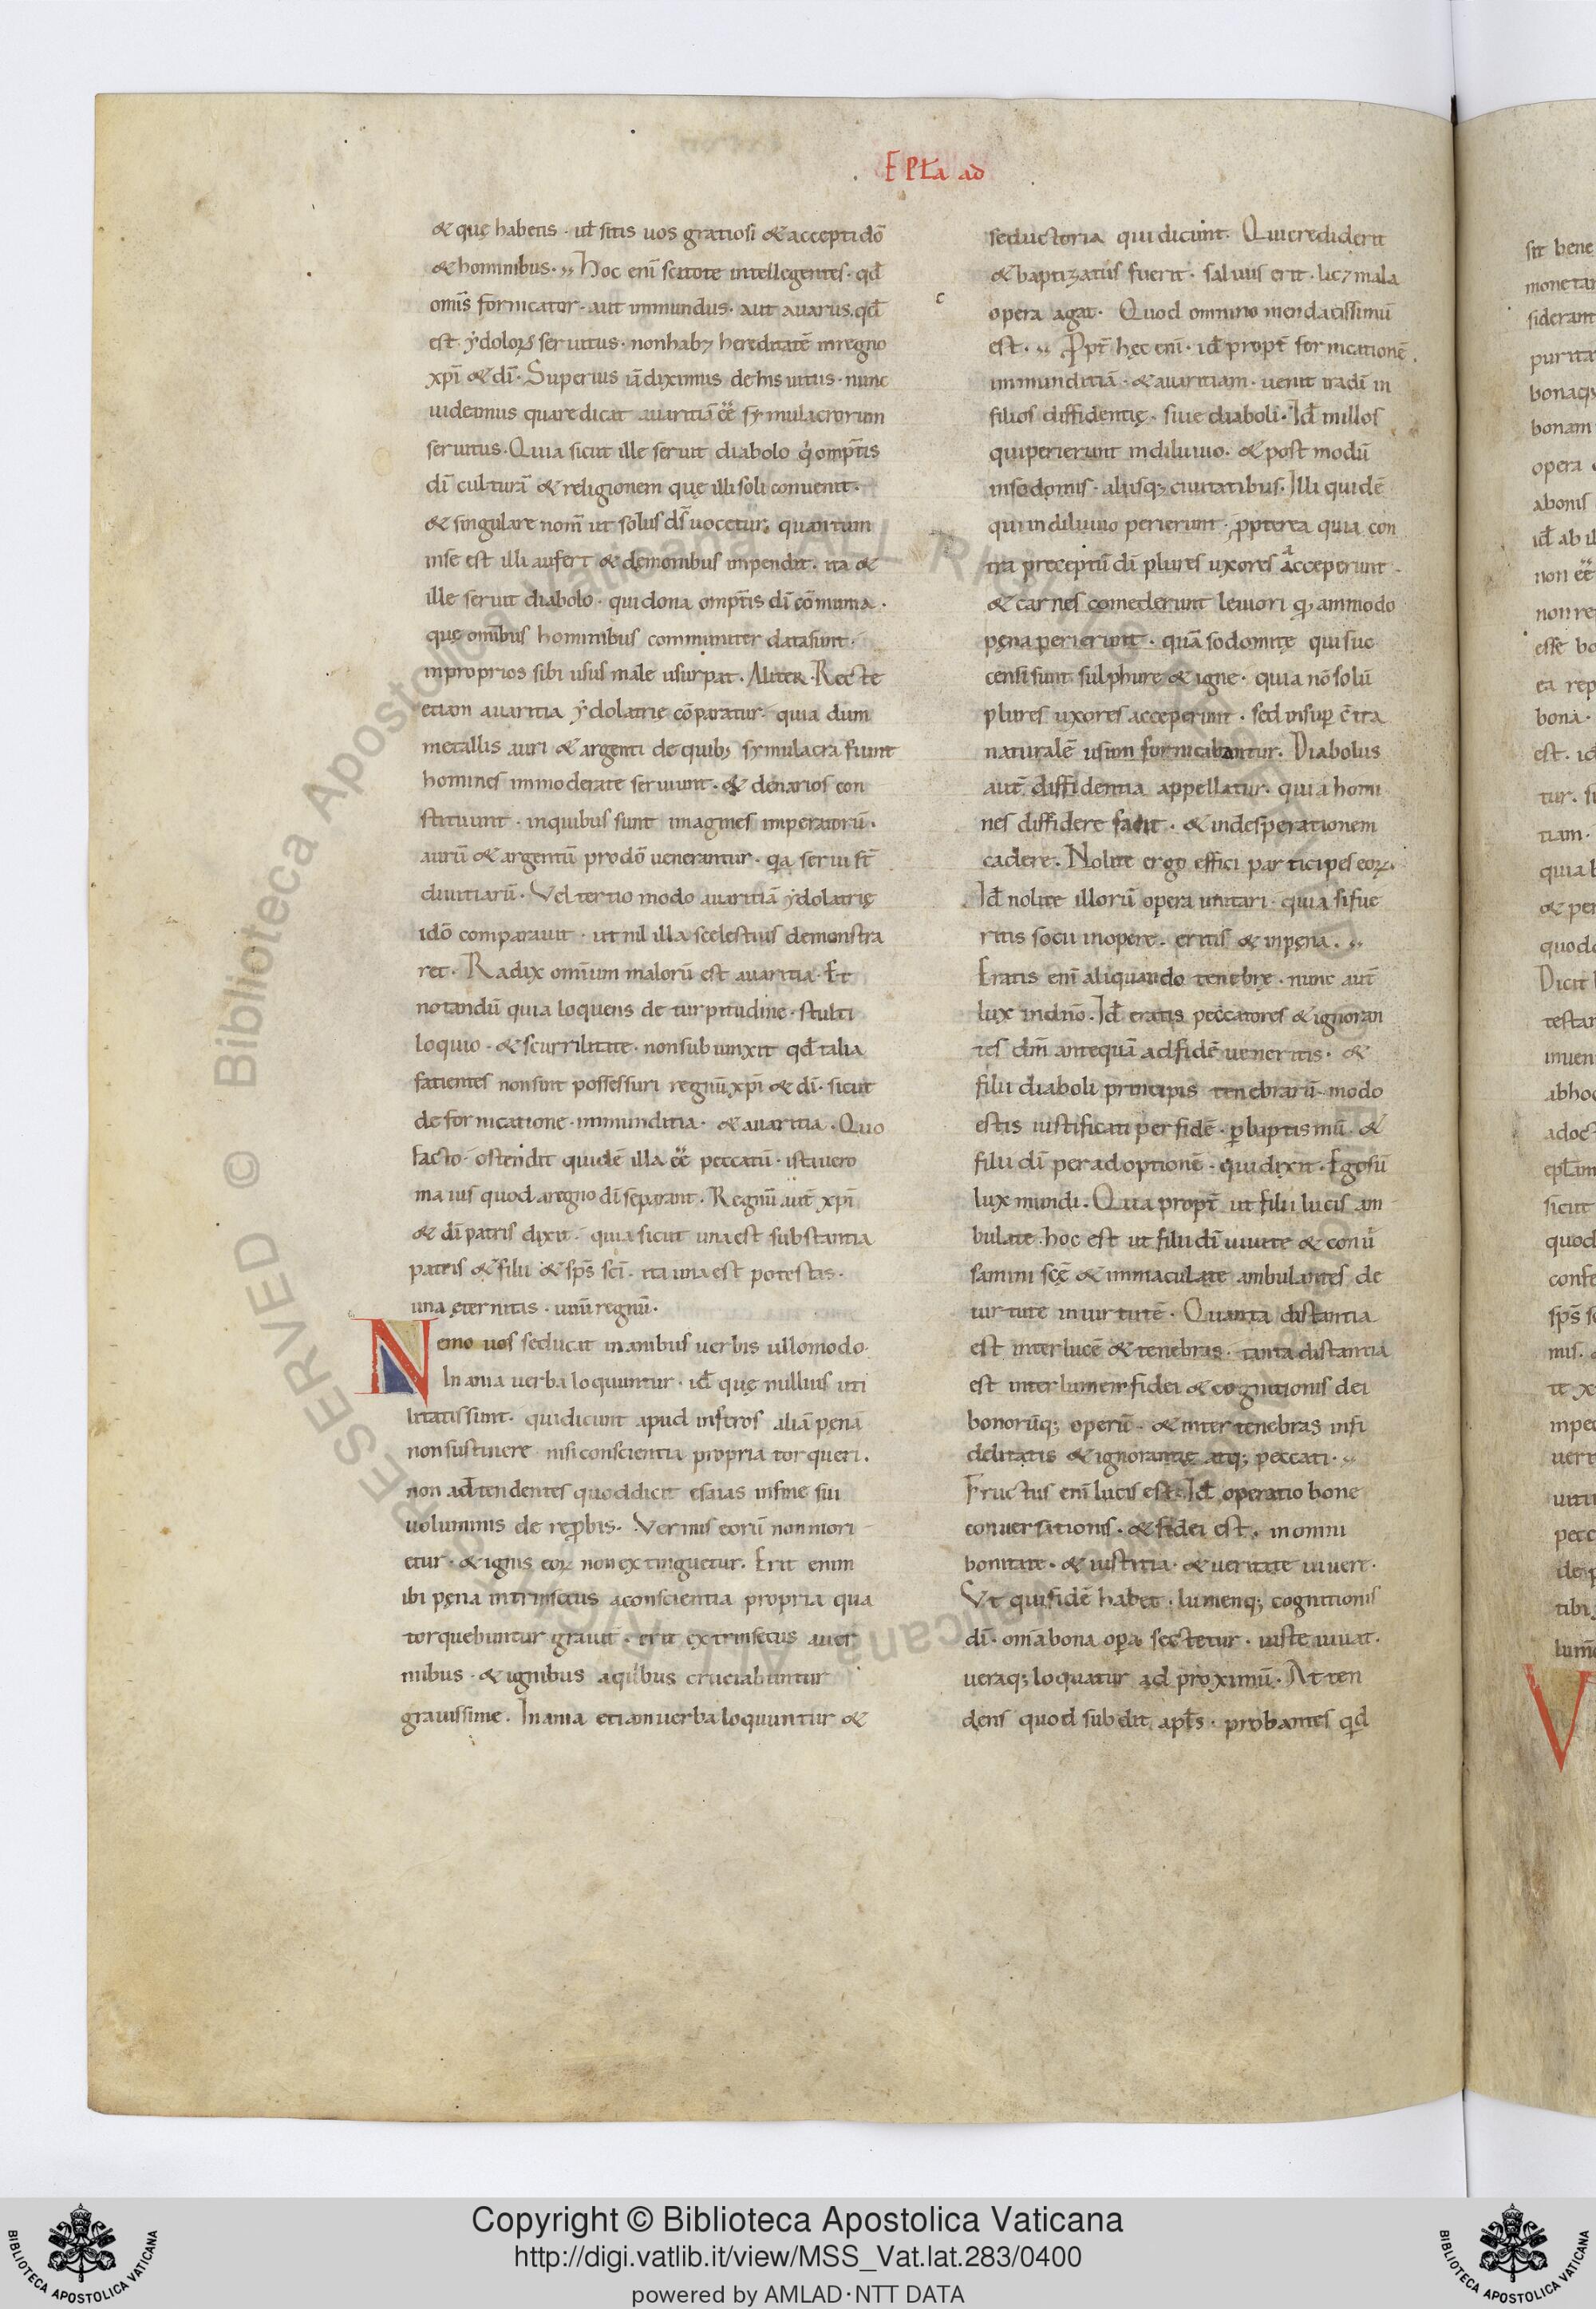 EPLa ad
& quę habetis · ut sitis uos gratiosi & accepti dõ
& hominibus · Hoc enĩ scitote intellegentes · qđ
omĩs fornicator · aut inmundus · aut auarus · qđ
est ydoloꝝ seruitus · non habꝫ hereditatẽ in regno
xpĩ & dĩ · Superius iã diximus de his uitiis · nunc
uideamus quare dicat auaritiã eẽ symulacrorum
seruitus · Quia sicut ille seruit diabolo qͥ omptĩs
dĩ culturã & religionem quę illi soli conuenit ·
& singulare nom̃ ut solus ds̃ uocetur · quantum
in se est illi aufert & demonibus inpendit · ita &
ille seruit diabolo · qui dona omptĩs dĩ cõmunia ·
quę omĩbus hominibus communiter data sunt ·
in proprios sibi usus male usurpat · Aliter · Recte
etiam auaritia ydolatrie cõparatur · quia dum
metallis auri & argenti de quibꝫ symulacra fiunt
homines inmoderate seruiunt · & denarios con
stituunt · in quibus sunt imagines imperatorũ ·
aurũ & argentũ pro dõ uenerantur · qa serui st̃
diuitiarũ · Vel tertio modo auaritiã ydolatrię
idõ comparauit · ut nil illa scelestius demonstra
ret · Radix omnium malorũ est auaritia · Et
notandũ quia loquens de turpitudine · stulti
loquio · & scurrilitate · non subiunxit qđ talia
facientes non sint possessuri regnũ xpĩ & dĩ · sicut
de fornicatione · inmunditia · & auaritia · Quo
facto · ostendit quidẽ illa eẽ peccatũ · ista uero
maius quod a regno dĩ separant · Regnũ aut̃ xpĩ
& dĩ patris dixit · quia sicut una est substantia
patris & filii & sps̃ scĩ · ita una est potestas ·
una ęternitas · unũ regnũ ·
Nemo uos seducat inanibus uerbis ullo modo ·
Inania uerba loquuntur · id̃ quę nullius uti
litatis sunt · qui dicunt apud inferos aliã pęnã
non sustinere nisi conscientia propria torqueri ·
non adtendentes quod dicit esaias in fine sui
uoluminis de reprobis · Vermis eorũ non mori
etur · & ignis eoꝝ non extinguetur · Erit enim
ibi pęna intrinsecus a conscientia propria qua
torquebuntur grauit̃ · erit extrinsecus a uer
mibus · & ignibus a quibus cruciabuntur
grauissime · Inania etiam uerba loquuntur &
seductoria qui dicunt · Qui crediderit
& baptizatus fuerit · saluus erit · licꝫ mala
opera agat · Quod omnino mendacissimũ
est · Ppt̃ hęc enĩ · id̃ propt̃ fornicationẽ
inmunditiã · & auaritiam · uenit ira dĩ in
filios diffidentię · siue diaboli · Id̃ in illos
qui perierunt in diluuio · & post modũ
in sodomis · aliisqꝫ ciuitatibus · Illi quidẽ
qui in diluuio perierunt · ꝓpterea quia con
tra preceptũ dĩ plures uxores acceperunt ·
& carnes comederunt leuiori quodammodo
pęna perierunt · quã sodomitę qui suc
censi sunt sulphure & igne · quia nõ solũ
plures uxores acceperunt · sed insup c̃tra
naturalẽ usum fornicabantur · Diabolus
aut̃ diffidentia appellatur · quia homi
nes diffidere facit · & in desperationem
cadere · Nolite ergo effici participes eoꝝ ·
Id̃ nolite illorũ opera imitari · quia si fue
ritis socii in opere · eritis & in pęna ·
Eratis enĩ aliquando tenebrę · nunc aut̃
lux in dño · Id̃ eratis peccatores & ignoran
tes dm̃ antequã ad fidẽ ueneritis · &
filii diaboli principis tenebrarũ · modo
estis iustificati per fidẽ · ꝑ baptismũ · &
filii dĩ per adoptionẽ · qui dixit · Ego sũ
lux mundi · Qua propt̃ ut filii lucis am
bulate · hoc est ut filii dĩ uiuite & conũ
samini scẽ & immaculate ambulantes de
uirtute in uirtutẽ · Quanta distantia
est inter lucẽ & tenebras · tanta distantia
est inter lumen fidei & cognitionis dei
bonorũqꝫ operũ · & inter tenebras infi
delitatis & ignorantię atqꝫ peccati ·
Fructus enĩ lucis est · Id̃ operatio bone
conuersationis · & fidei est · in omni
bonitate · & iustitia · & ueritate uiuere ·
Vt qui fidẽ habet · lumenqꝫ cognitionis
dĩ · omĩa bona opa sectetur · iuste uiuat ·
ueraqꝫ loquatur ad proximũ · Atten
dens quod subdit apls̃ · probantes qd
Copyright © Biblioteca Apostolica Vaticana
http://digi.vatlib.it/view/MSS_Vat.lat.283/0400
powered by AMLAD·NTT DATA